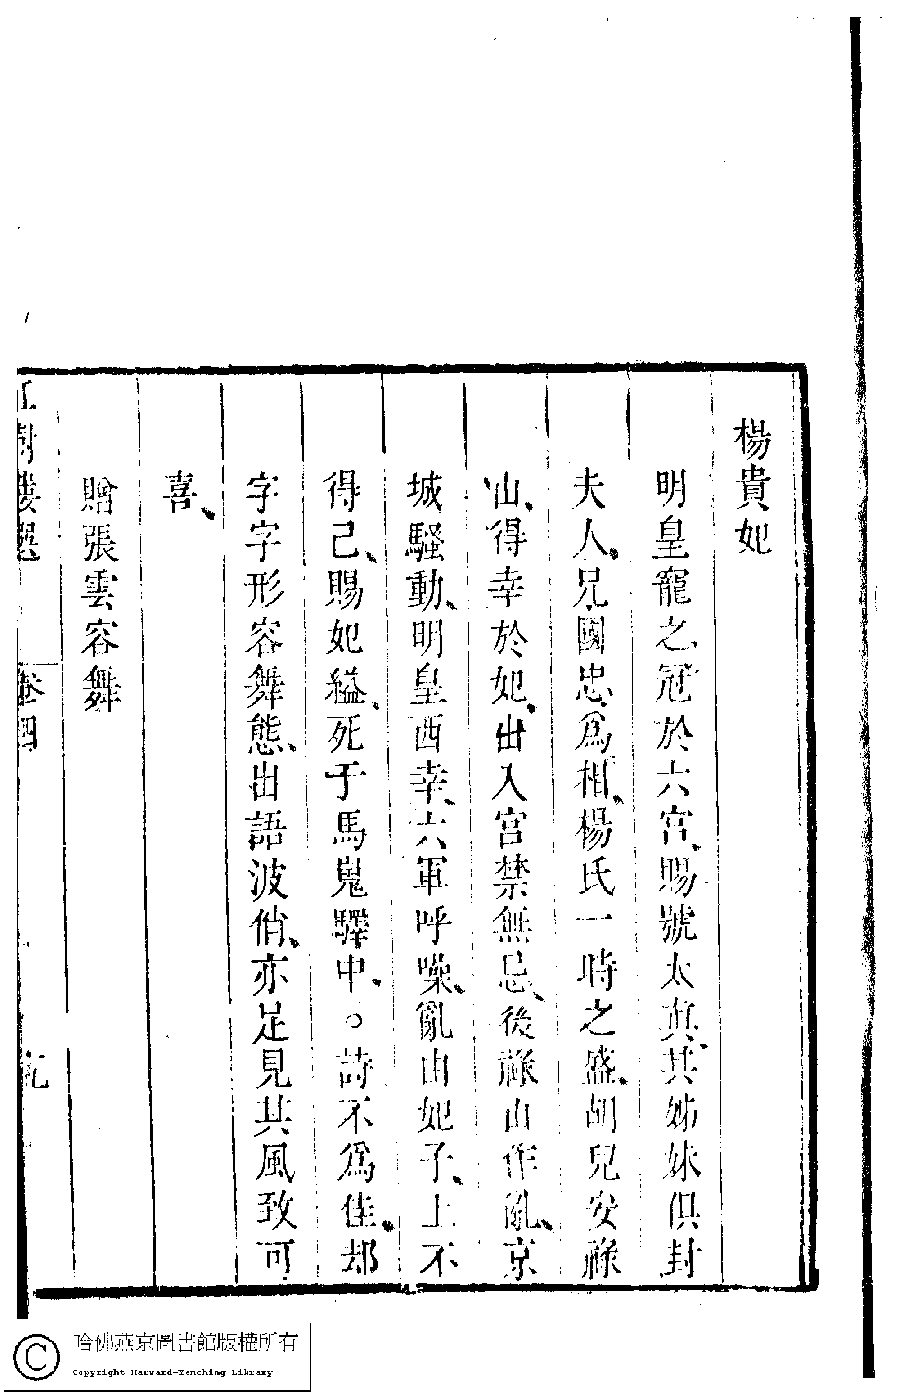 楊貴妃
明皇寵之冠於六宮、賜號太真、其姊妹俱封
夫人、兄國忠、為相、楊氏一時之盛、胡兒安祿
山、得幸於妃、出入宮禁無忌、後祿山作亂、京
城騷動、明皇西幸、六軍呼噪、亂由妃子、上不
得已、賜妃縊、死于馬嵬驛中、○詩不為佳、却
字字形容舞態、出語波俏、亦足見其風致可
喜、
贈張雲容舞
紅樹樓選 卷四 九
哈佛燕京圖書館版權所有
Copyright Harvard-Yenching Library